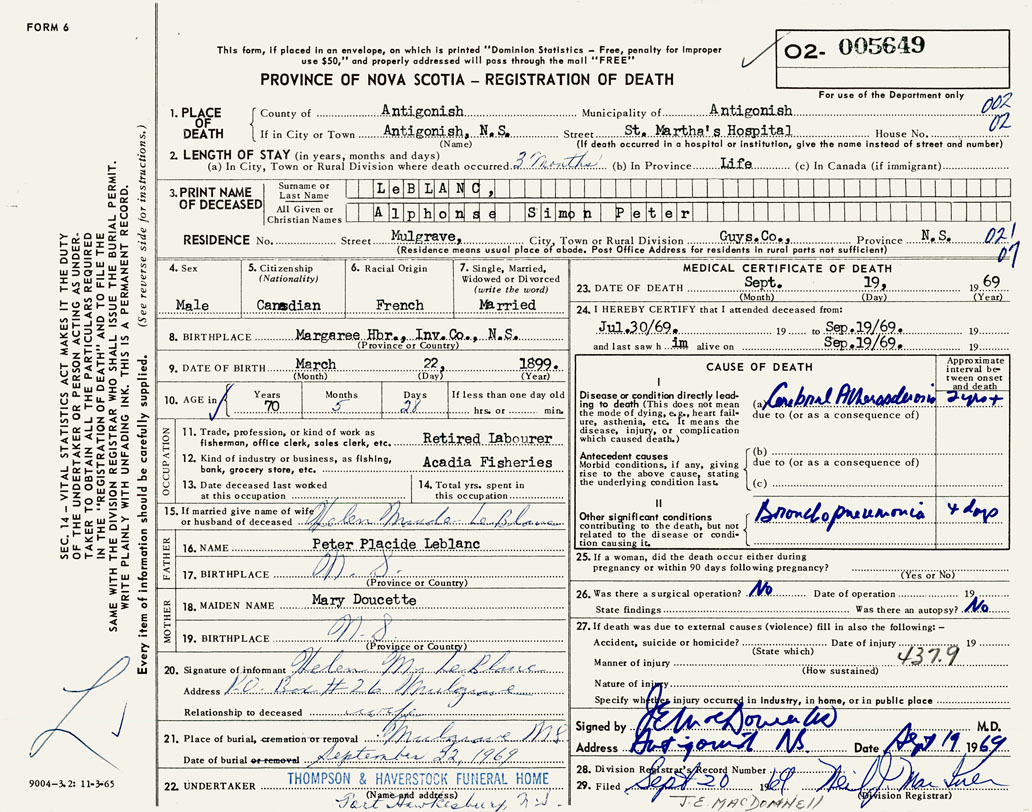 FORM 6
This form, if placed in an envelope, on which is printed "Dominion Statistics – Free, penalty for improper
use $50," and properly addressed will pass through the mail "FREE"
PROVINCE OF NOVA SCOTIA – REGISTRATION OF DEATH
O2- 005649
For use of the Department only
002
02
SEC. 14 – VITAL STATISTICS ACT MAKES IT THE DUTY
OF THE UNDERTAKER OR PERSON ACTING AS UNDER-
TAKER TO OBTAIN ALL THE PARTICULARS REQUIRED
IN THE "REGISTRATION OF DEATH" AND TO FILE THE
SAME WITH THE DIVISION REGISTRAR WHO SHALL ISSUE THE BURIAL PERMIT.
WRITE PLAINLY WITH UNFADING INK. THIS IS A PERMANENT RECORD.
Every item of information should be carefully supplied. (See reverse side for instructions.)
1. PLACE OF DEATH
County of Antigonish Municipality of Antigonish
If in City or Town Antigonish, N.S. Street St. Martha's Hospital House No.
(Name) (If death occurred in a hospital or institution, give the name instead of street and number)
2. LENGTH OF STAY (in years, months and days)
(a) In City, Town or Rural Division where death occurred 3 months (b) In Province Life (c) In Canada (if immigrant)
3. PRINT NAME OF DECEASED
Surname or Last Name LeBLANC,
All Given or Christian Names Alphonse Simon Peter
RESIDENCE No. Street Mulgrave, City, Town or Rural Division Guys.Co., Province N.S. 021
(Residence means usual place of abode. Post Office Address for residents in rural parts not sufficient) 07
4. Sex
Male
5. Citizenship
(Nationality)
Canadian
6. Racial Origin
French
7. Single, Married,
Widowed or Divorced
(write the word)
Married
8. BIRTHPLACE Margaree Hbr., Inv.Co., N.S.
(Province or Country)
9. DATE OF BIRTH March 22, 1899.
(Month) (Day) (Year)
10. AGE in Years Months Days If less than one day old
70 5 28 hrs. or min.
OCCUPATION
11. Trade, profession, or kind of work as
fisherman, office clerk, sales clerk, etc. Retired Labourer
12. Kind of industry or business, as fishing,
bank, grocery store, etc. Acadia Fisheries
13. Date deceased last worked
at this occupation
14. Total yrs. spent in
this occupation
15. If married give name of wife
or husband of deceased Helen Maude LeBlanc
FATHER
16. NAME Peter Placide Leblanc
17. BIRTHPLACE N.S.
(Province or Country)
MOTHER
18. MAIDEN NAME Mary Doucette
19. BIRTHPLACE N.S
(Province or Country)
20. Signature of informant Helen M. LeBlanc
Address P.O. Box # 26 Mulgrave
Relationship to deceased wife
21. Place of burial, cremation or removal Mulgrave NS
Date of burial or removal September 22, 1969
22. UNDERTAKER THOMPSON & HAVERSTOCK FUNERAL HOME
(Name and address)
Port Hawkesbury, N.S.
9004-3.2: 11-3-65
MEDICAL CERTIFICATE OF DEATH
23. DATE OF DEATH Sept. 19, 19 69
(Month) (Day) (Year)
24. I HEREBY CERTIFY that I attended deceased from:
Jul.30/69. 19 to Sep.19/69. 19
and last saw h im alive on Sep.19/69. 19
CAUSE OF DEATH
Approximate
interval be-
tween onset
and death
I
Disease or condition directly lead-
ing to death (This does not mean
the mode of dying, e.g., heart fail-
ure, asthenia, etc. It means the
disease, injury, or complication
which caused death.)
(a) Cerebral Atherosclerosis 2 yrs +
due to (or as a consequence of)
Antecedent causes
Morbid conditions, if any, giving
rise to the above cause, stating
the underlying condition last.
(b)
due to (or as a consequence of)
(c)
II
Other significant conditions
contributing to the death, but not
related to the disease or condi-
tion causing it.
Bronchopneumonia 4 days
25. If a woman, did the death occur either during
pregnancy or within 90 days following pregnancy?
(Yes or No)
26. Was there a surgical operation? No Date of operation 19
State findings Was there an autopsy? No
27. If death was due to external causes (violence) fill in also the following: –
Accident, suicide or homicide? Date of injury 19
(State which) 437.9
Manner of injury
(How sustained)
Nature of injury
Specify whether injury occurred in industry, in home, or in public place
Signed by J E MacDonnell M.D.
Address Antigonish NS. Date Sept 19 1969
28. Division Registrar's Record Number
29. Filed Sept 20 1969 Neil J MacIsaac
(Division Registrar)
J.E. MACDONNELL